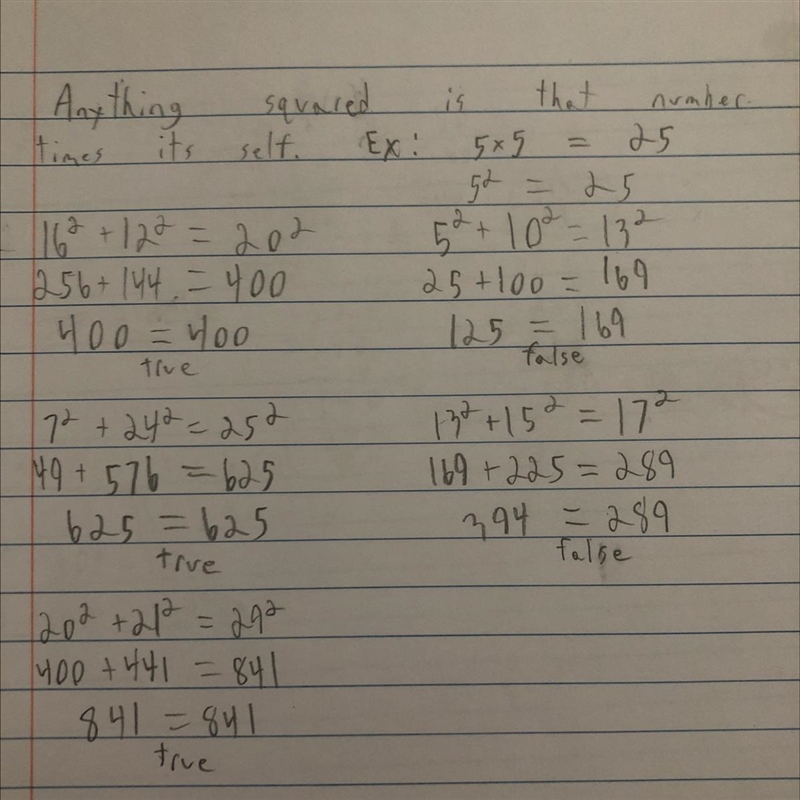 Anything squared is that number
times its self. Ex: 5×5 = 25
5² = 25
16² + 12² = 20²
256 + 144 = 400
400 = 400
true
5² + 10² = 13²
25 + 100 = 169
125 = 169
false
7² + 24² = 25²
49 + 576 = 625
625 = 625
true
13² + 15² = 17²
169 + 225 = 289
394 = 289
false
20² + 21² = 29²
400 + 441 = 841
841 = 841
true